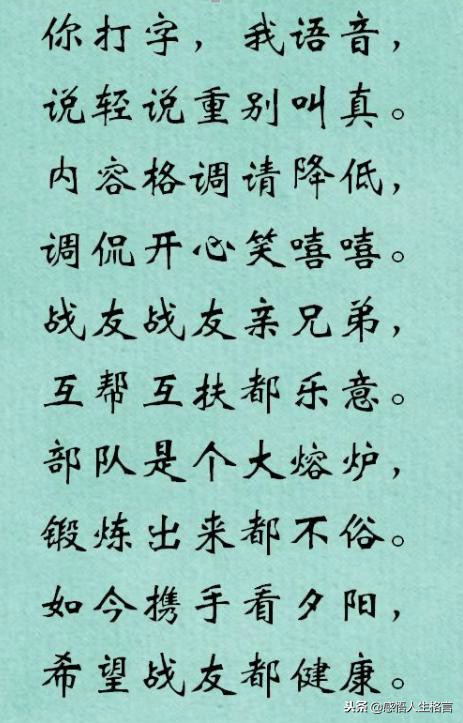 你打字，我语音，
说轻说重别叫真。
内容格调请降低，
调侃开心笑嘻嘻。
战友战友亲兄弟，
互帮互扶都乐意。
部队是个大熔炉，
锻炼出来都不俗。
如今携手看夕阳，
希望战友都健康。
头条 @感悟人生格言